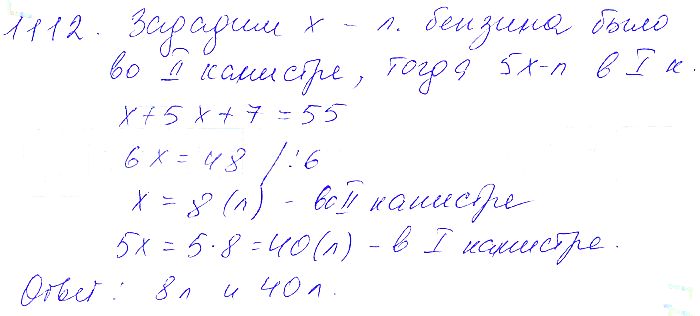 1112. Зададим x - л. бензина было
во II канистре, тогда 5x-л в I к.
x+5x+7=55
6x=48 /:6
x=8(л) - во II канистре
5x=5·8=40(л) - в I канистре.
Ответ: 8л и 40л.